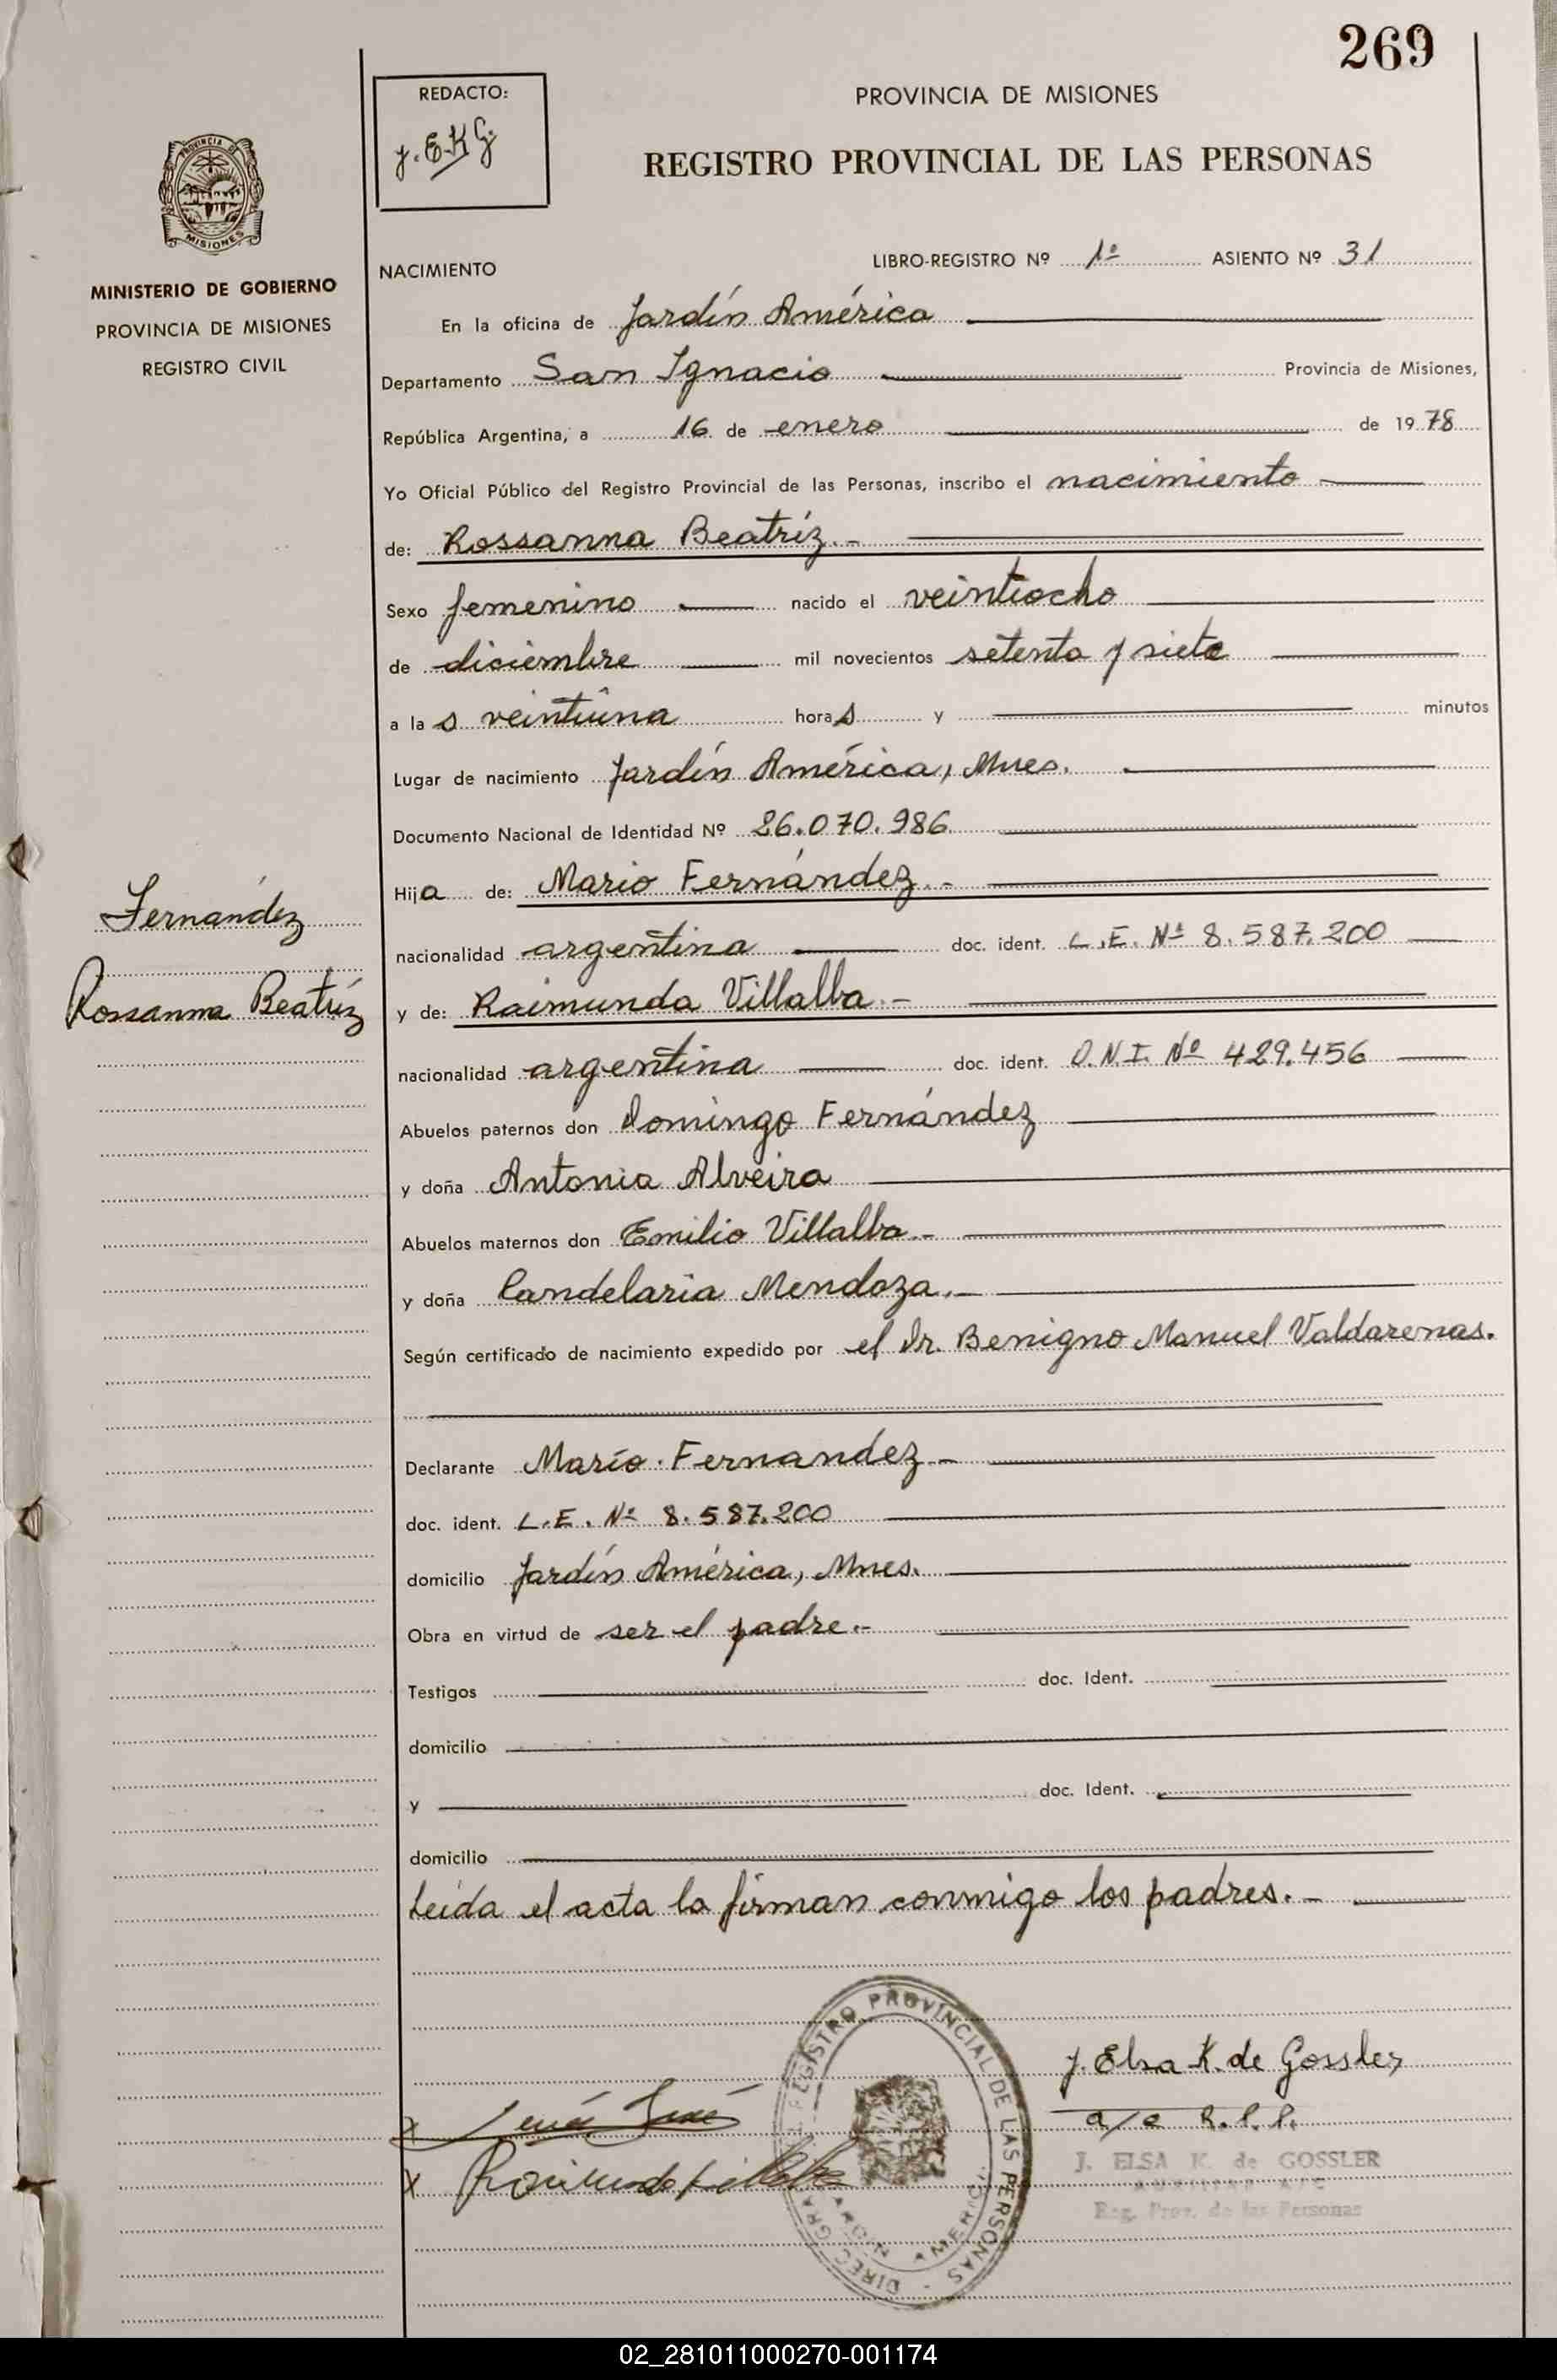 269
REDACTO:
J.E.K.G.
PROVINCIA DE MISIONES
REGISTRO PROVINCIAL DE LAS PERSONAS
PROVINCIA DE
MISIONES
MINISTERIO DE GOBIERNO
PROVINCIA DE MISIONES
REGISTRO CIVIL
NACIMIENTO LIBRO-REGISTRO Nº 1º ASIENTO Nº 31
En la oficina de Jardín América
Departamento San Ignacio Provincia de Misiones,
República Argentina, a 16 de enero de 1978
Yo Oficial Público del Registro Provincial de las Personas, inscribo el nacimiento
de: Rossanna Beatríz.-
Sexo femenino nacido el veintiocho
de diciembre mil novecientos setenta y siete
a las veintiuna horas y minutos
Lugar de nacimiento Jardín América, Mnes.
Documento Nacional de Identidad Nº 26.070.986
Hija de: Mario Fernández.-
Fernández
nacionalidad argentina doc. ident. L.E. Nº 8.587.200
Rossanna Beatríz
y de: Raimunda Villalba.-
nacionalidad argentina doc. ident. D.N.I. Nº 429.456
Abuelos paternos don Domingo Fernández
y doña Antonia Alveira
Abuelos maternos don Emilio Villalba.-
y doña Candelaria Mendoza.-
Según certificado de nacimiento expedido por el Dr. Benigno Manuel Valdarenas.
Declarante Mario Fernandez.-
doc. ident. L.E. Nº 8.587.200
domicilio Jardín América, Mnes.
Obra en virtud de ser el padre.-
Testigos doc. Ident.
domicilio
y doc. Ident.
domicilio
Leída el acta la firman conmigo los padres.-
REGISTRO PROVINCIAL DE LAS PERSONAS - DIREC. GRAL.
JARDIN AMERICA
J. Elsa K. de Gossler
a/c R.P.P.
x
x Raimunda Villalba
J. ELSA K. de GOSSLER
AUXILIAR A/C
Reg. Prov. de las Personas
02_281011000270-001174